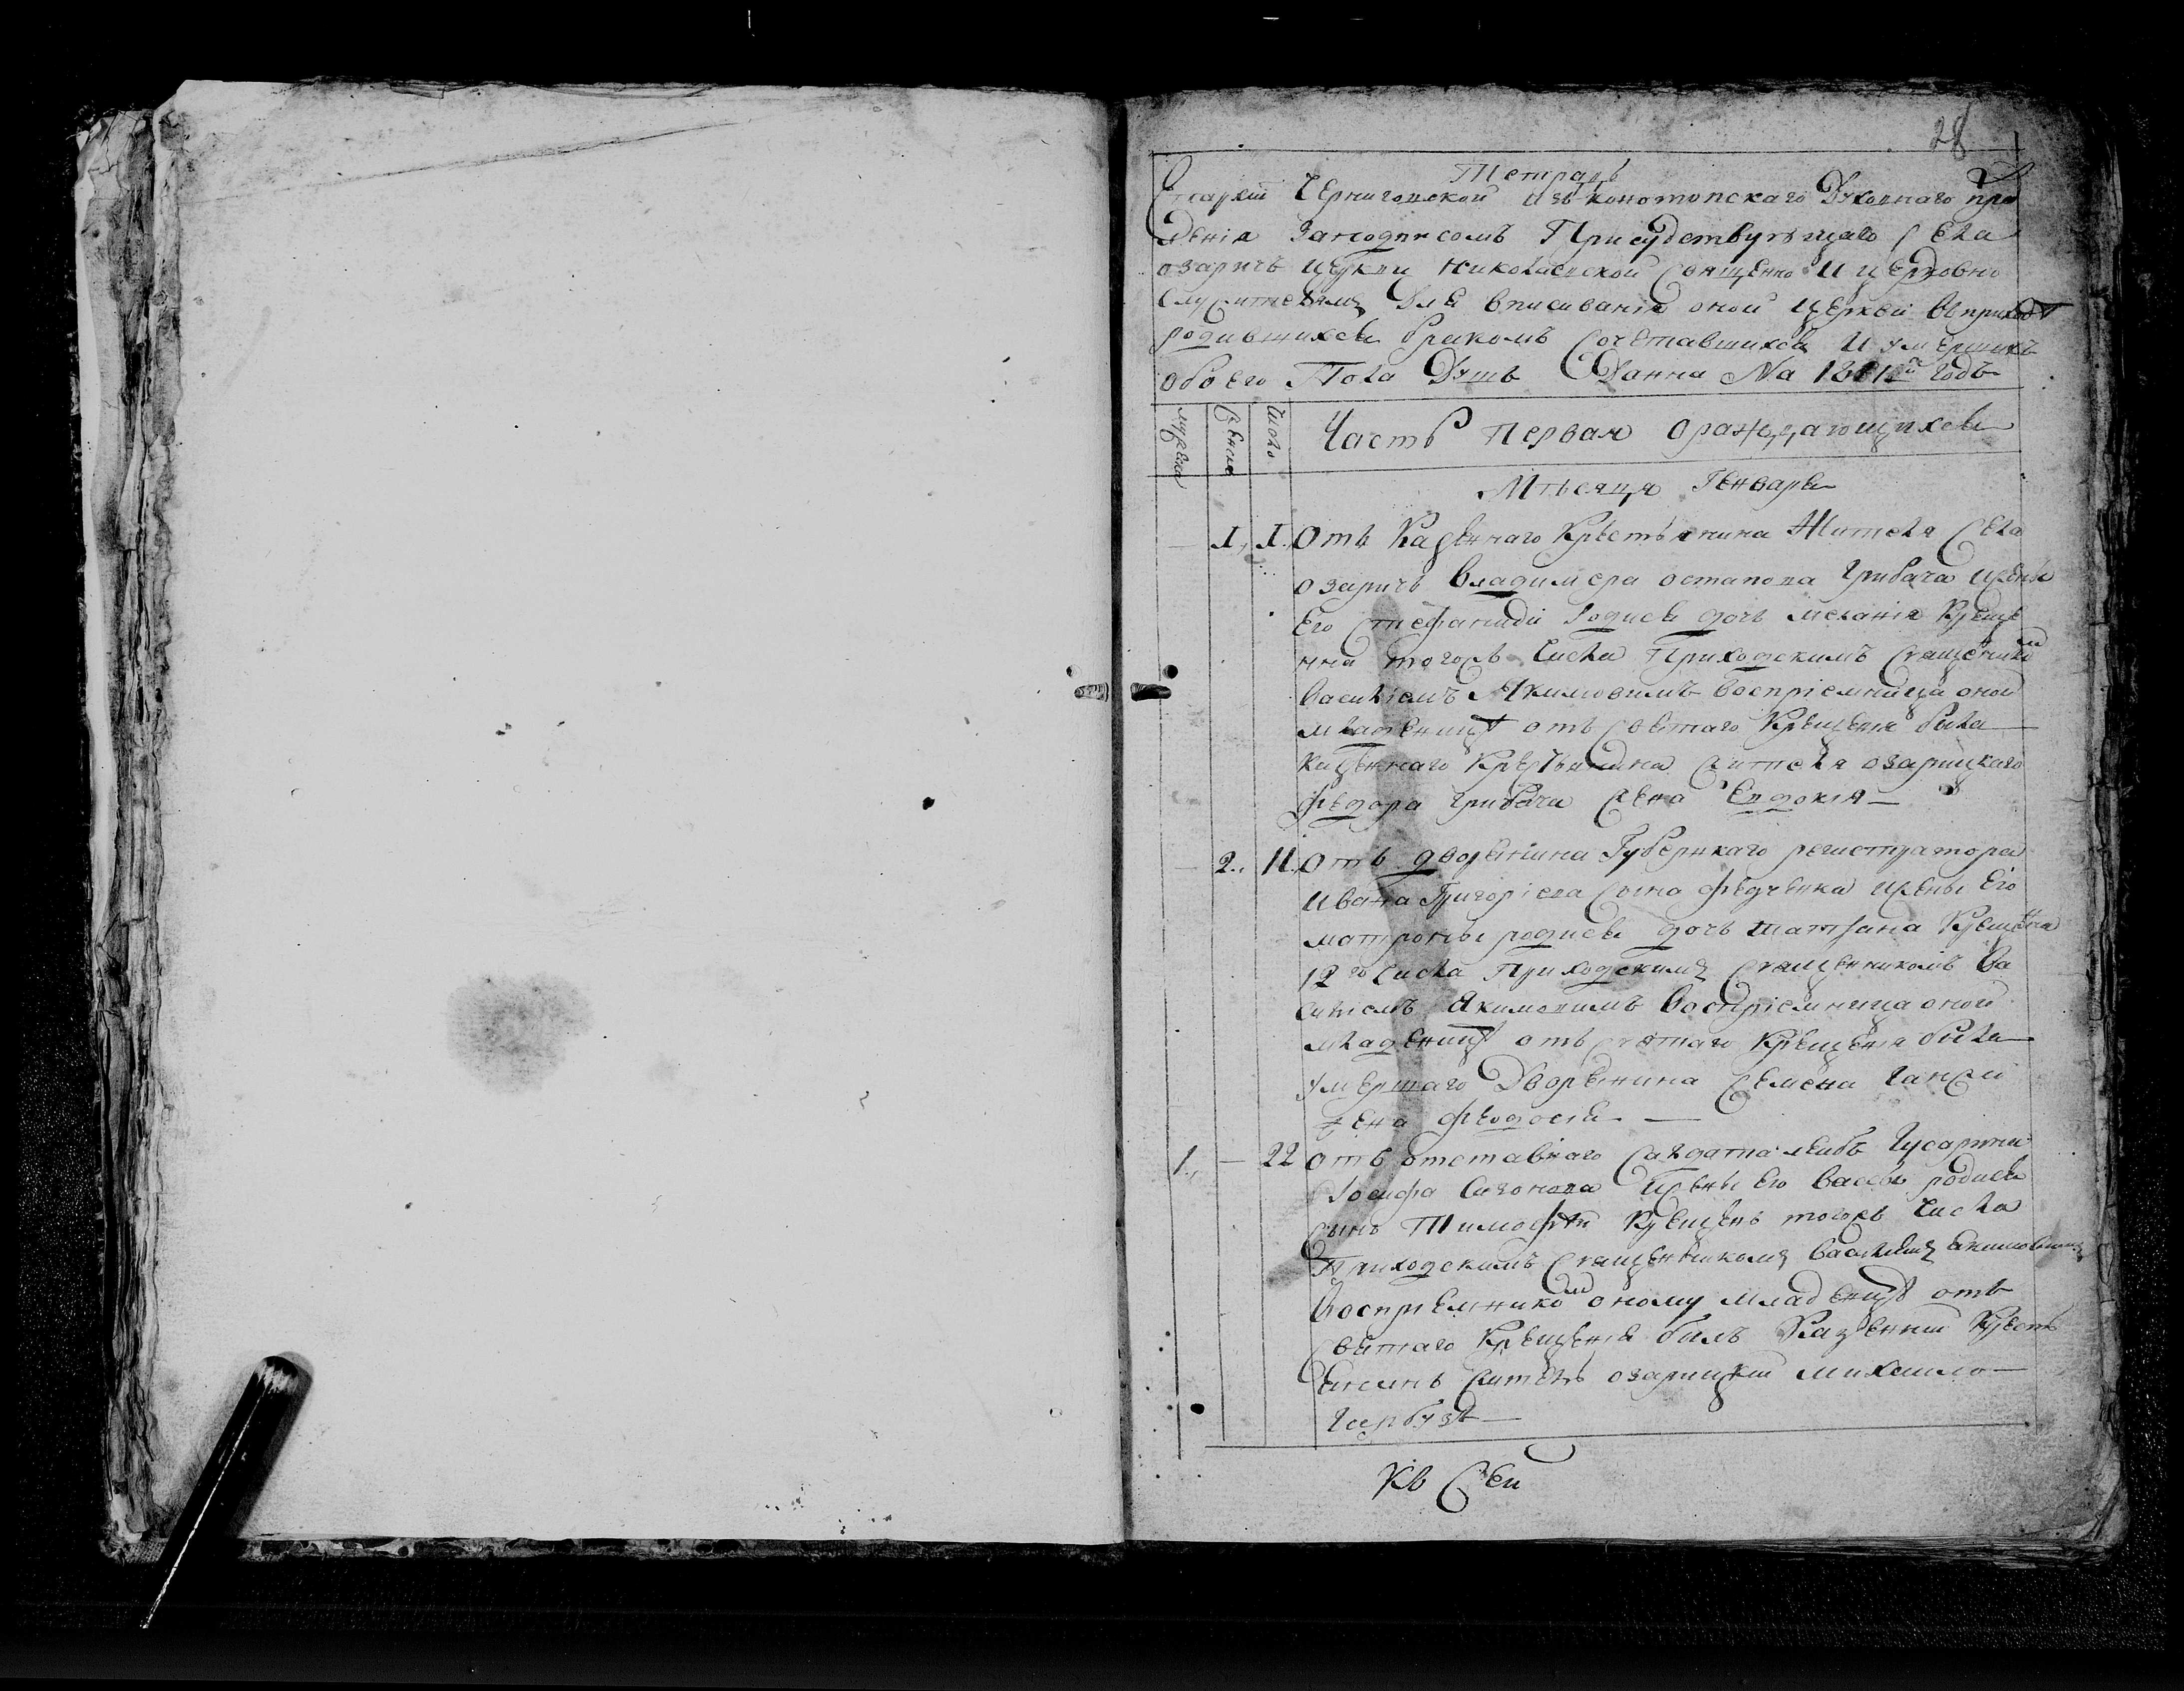 28
Тетрадь
Епархіи Черниговской изъ конотопскаго Духовнаго пра
вленія Заподписомъ Присудствующаго Села
озаричъ церкви Николаевской Священно и церковно
служителямъ Для вписиванія оной церкви въприходѣ
родившихся бракомъ Сочетавшихся И умершихъ
обоего Пола Душъ Данна На годъ
мужеска
женска
Число
Часть первая ораждающихся
Мѣсяця Генваря
1. 1. Отъ Казенаго Крестьянина Жителя Села
озаричъ владимера остапова грибача ижены
Его Стефаниди Родися дочь меланія Креще
нна тогожъ Числа Приходскимъ Священником
василіемъ Якимовимъ воспріемница оной
младеницѣ отъ святаго Крещенія была
казеннаго Крестьянина жителя озарицкаго
федора грибача жена Евдокія
2. 11. Отъ дворянина Губернкаго регистратора
ивана Григоріева сына федченка ижены Его
матроны родися дочь татіана Крещенна
12го Числа Приходскимъ Священникомъ Ва
силіемъ Якимовимъ воспріемница оной
младеницѣ отъ святаго Крещенія была
умершаго Дворянина Семена
жена феодосія
1. 22 отъ отставнаго Салдата лейбъ гусарина
Іосифа ижены Его васси родися
сынъ Тимофѣй Крещенъ тогожъ Числа
Приходскимъ Священникомъ василіемъ Якимовимъ
воспріемником оному младенцѣ отъ
святаго Крещенія билъ Казенний Кресть
янинъ житель озарицкій михаило
гарбузъ
Къ Сей